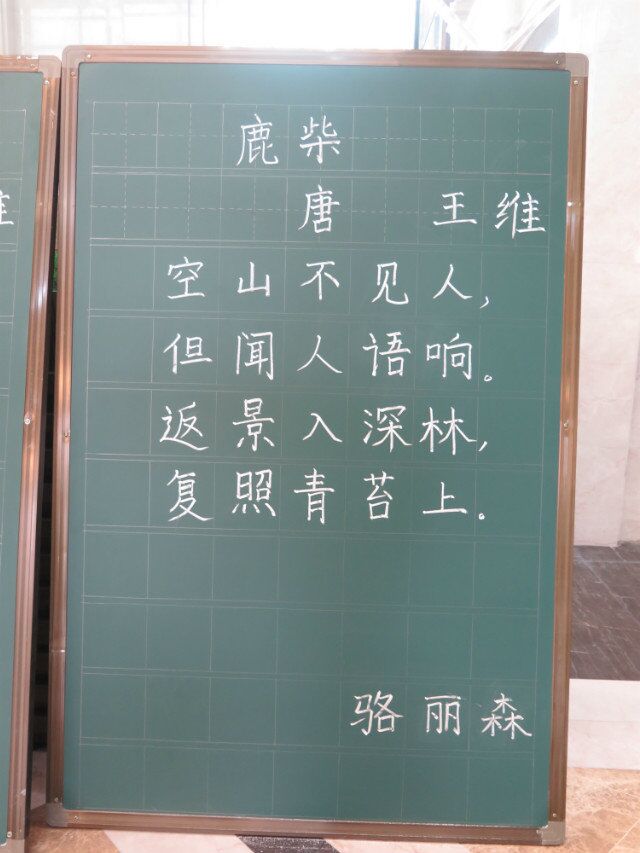 鹿柴
唐 王维
空山不见人,
但闻人语响。
返景入深林,
复照青苔上。
骆丽森